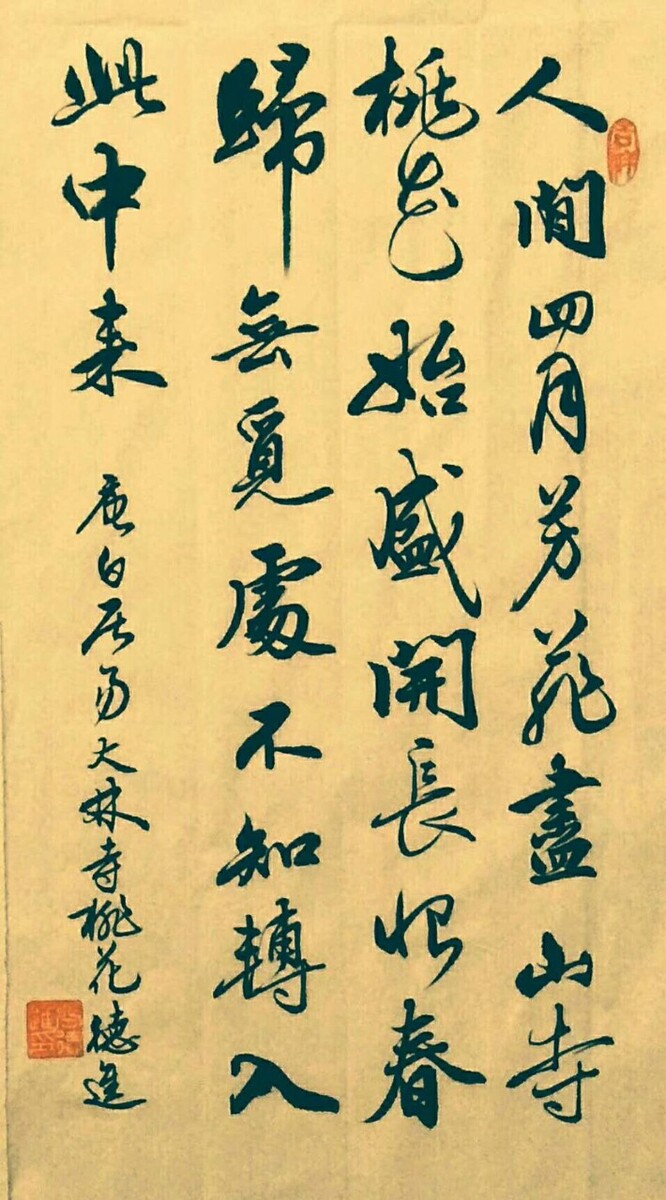 人間四月芳菲盡山寺
桃花始盛開長恨春
歸無覓處不知轉入
此中来
唐白居易大林寺桃花德進